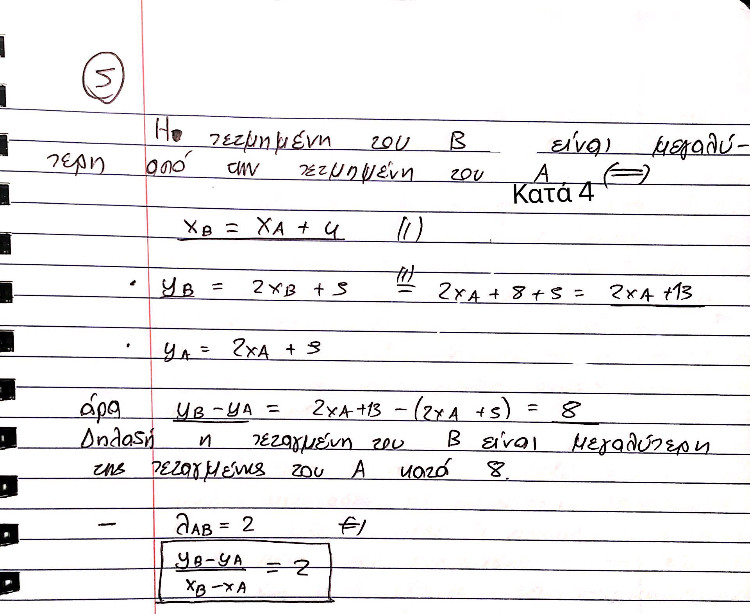 5
Η τετμημένη του Β είναι μεγαλύ-
τερη από την τετμημένη του Α (⇔)
Κατά 4
xB = xA + 4 (1)
· yB = 2xB + 5 (1)= 2xA + 8 + 5 = 2xA + 13
· yA = 2xA + 5
άρα yB - yA = 2xA + 13 - (2xA + 5) = 8
Δηλαδή η τεταγμένη του Β είναι μεγαλύτερη
της τεταγμένης του Α κατά 8.
— λAB = 2 ⇔
(yB - yA)/(xB - xA) = 2